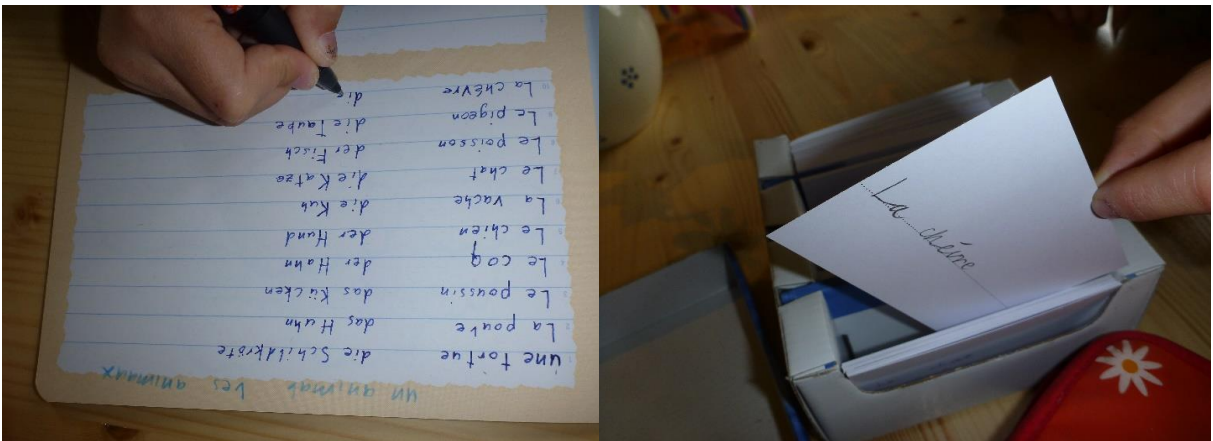 un animal Les animaux
une tortue die Schildkröte
La poule das Huhn
Le poussin das Kücken
Le coq der Hahn
Le chien der Hund
La vache die Kuh
Le chat die Katze
Le poisson der Fisch
Le pigeon die Taube
La chèvre die
La chèvre